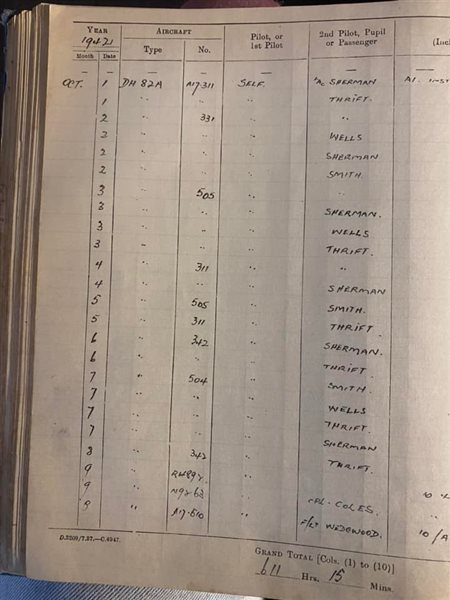 YEAR AIRCRAFT Pilot, or 2nd Pilot, Pupil
1942 1st Pilot or Passenger (Incl
Month Date Type No.
— — — — — —
OCT. 1 DH 82A A17-311 SELF. SHERMAN A1. INST
1 " " " THRIFT.
2 " 331 " "
2 " " " WELLS
2 " " " SHERMAN
2 " " " SMITH.
3 " 505 " "
3 " " " SHERMAN.
3 " " " WELLS
3 " " " THRIFT.
4 " 311 " "
4 " " " SHERMAN
5 " 505 " SMITH.
5 " 311 " THRIFT.
6 " 342 " SHERMAN.
6 " " " THRIFT.
7 " 504 " SMITH.
7 " " " WELLS
7 " " " THRIFT.
7 " " " SHERMAN
8 " 342 " THRIFT.
9 "
9 " " CPL. COLES.
9 " A17-610 " F/LT WEDGWOOD. 10/A
D.3209/7.37.—C.4947.
GRAND TOTAL [Cols. (1) to (10)]
611 Hrs. 15 Mins.